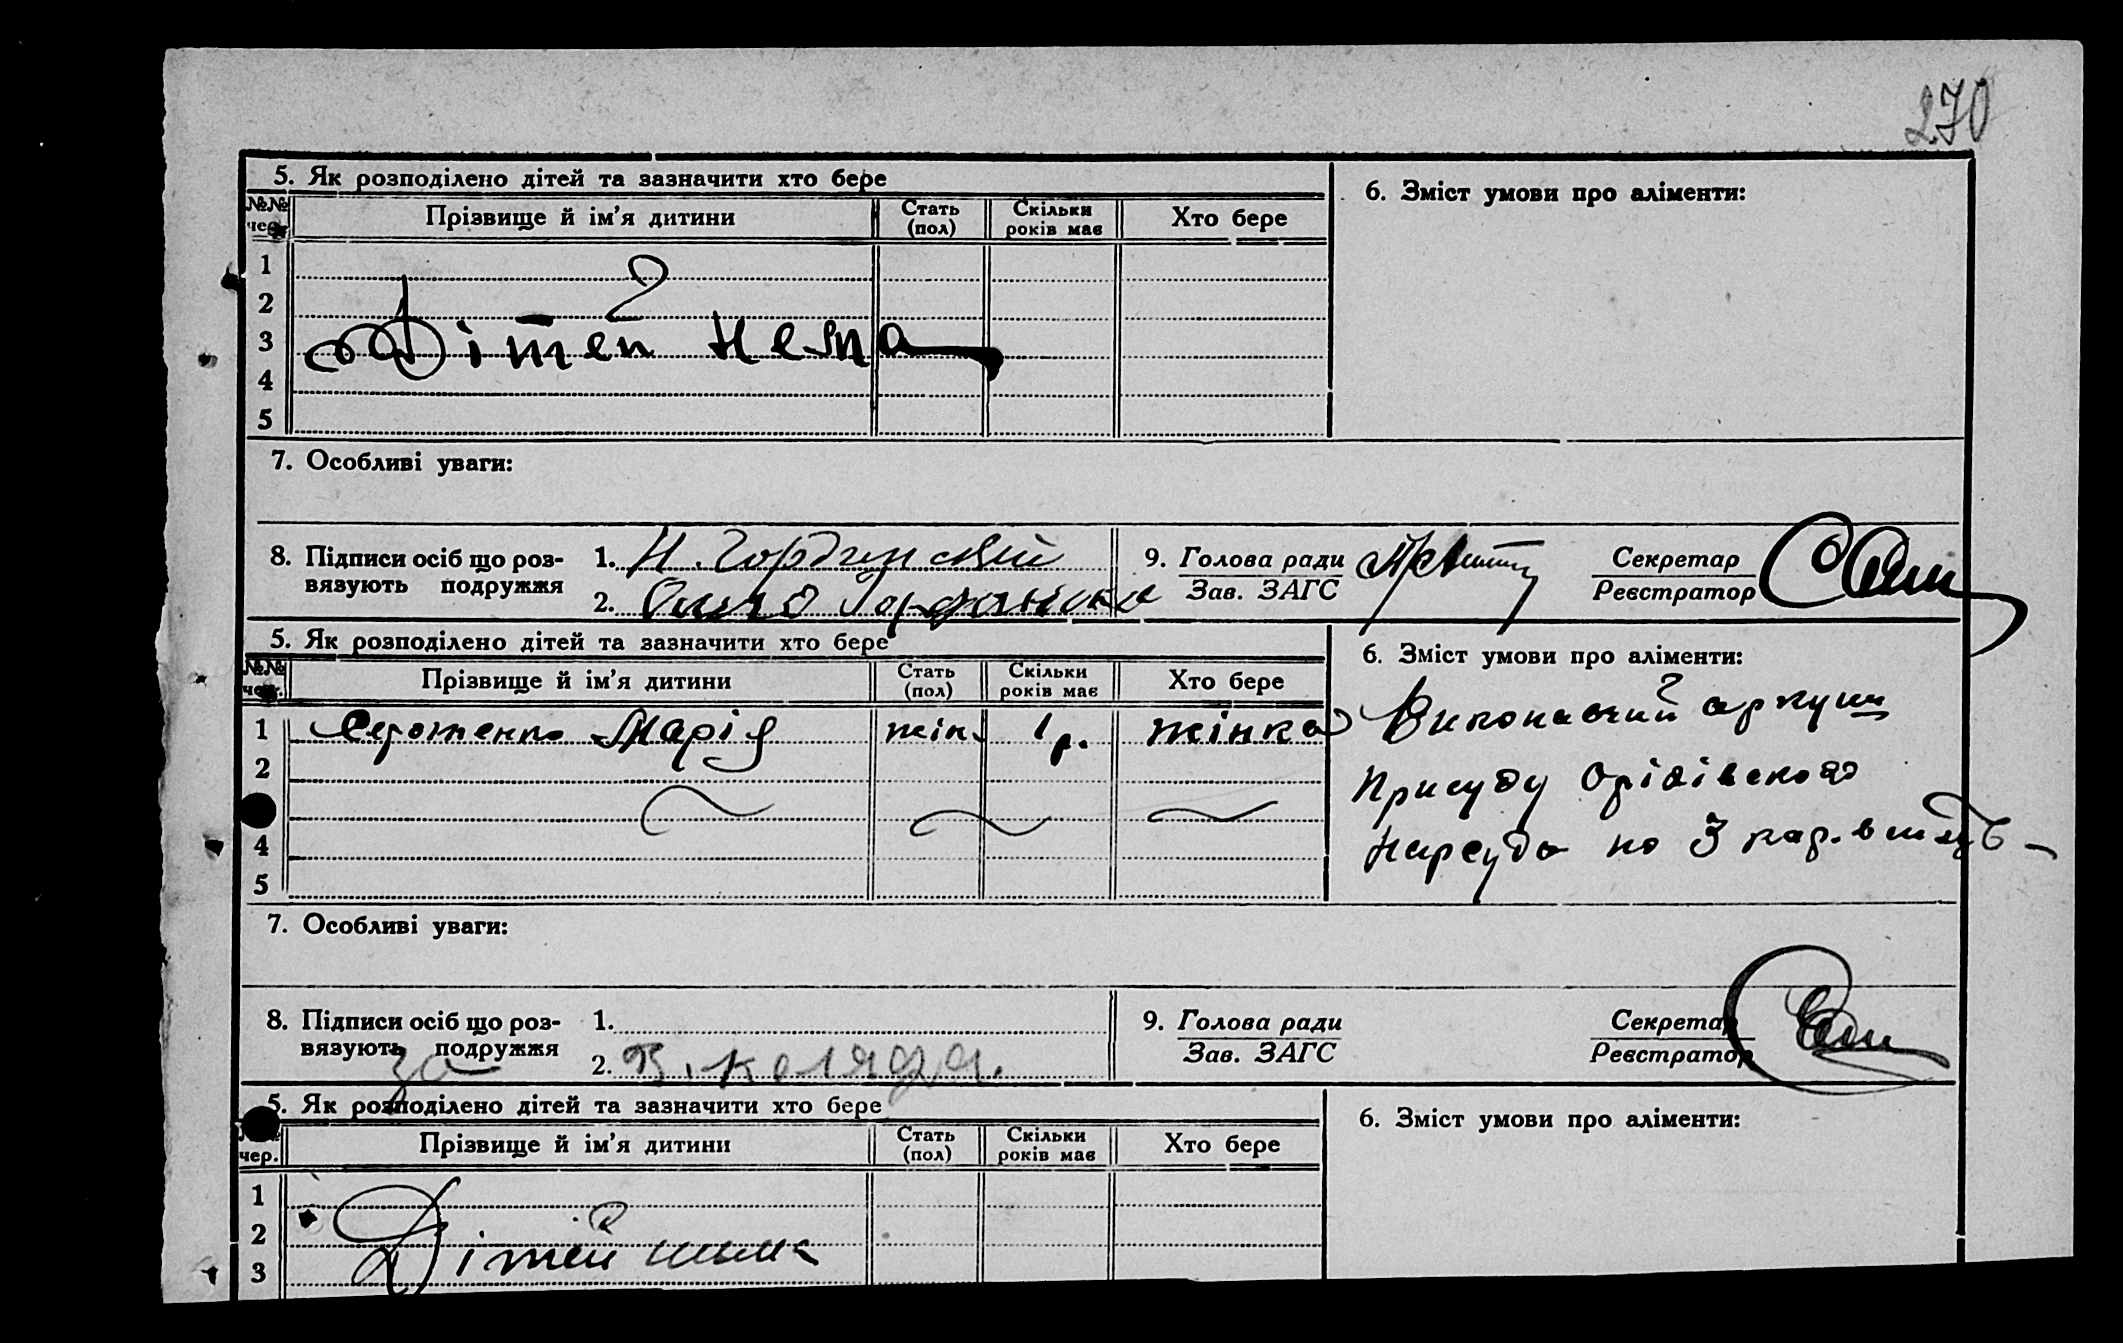 270
5. Як розподілено дітей та зазначити хто бере
6. Зміст умови про аліменти:
№№ чер.
Прізвище й ім'я дитини
Стать (пол)
Скільки років має
Хто бере
1
2
Дітей нема
3
4
5
7. Особливі уваги:
8. Підписи осіб що роз-
вязують подружжя
1. Н.
2.
9. Голова ради
Зав. ЗАГС
Секретар
Реєстратор
5. Як розподілено дітей та зазначити хто бере
6. Зміст умови про аліменти:
№№ чер.
Прізвище й ім'я дитини
Стать (пол)
Скільки років має
Хто бере
1 Марія жін. 1 р. жінка
2
4
5
Виконавчий аркуш
Присуду
Нарсуда по 3 кар. в
7. Особливі уваги:
8. Підписи осіб що роз-
вязують подружжя
1.
2. за В. Коляда.
9. Голова ради
Зав. ЗАГС
Секретар
Реєстратор
5. Як розподілено дітей та зазначити хто бере
6. Зміст умови про аліменти:
чер.
Прізвище й ім'я дитини
Стать (пол)
Скільки років має
Хто бере
1
2
Дітей нема
3